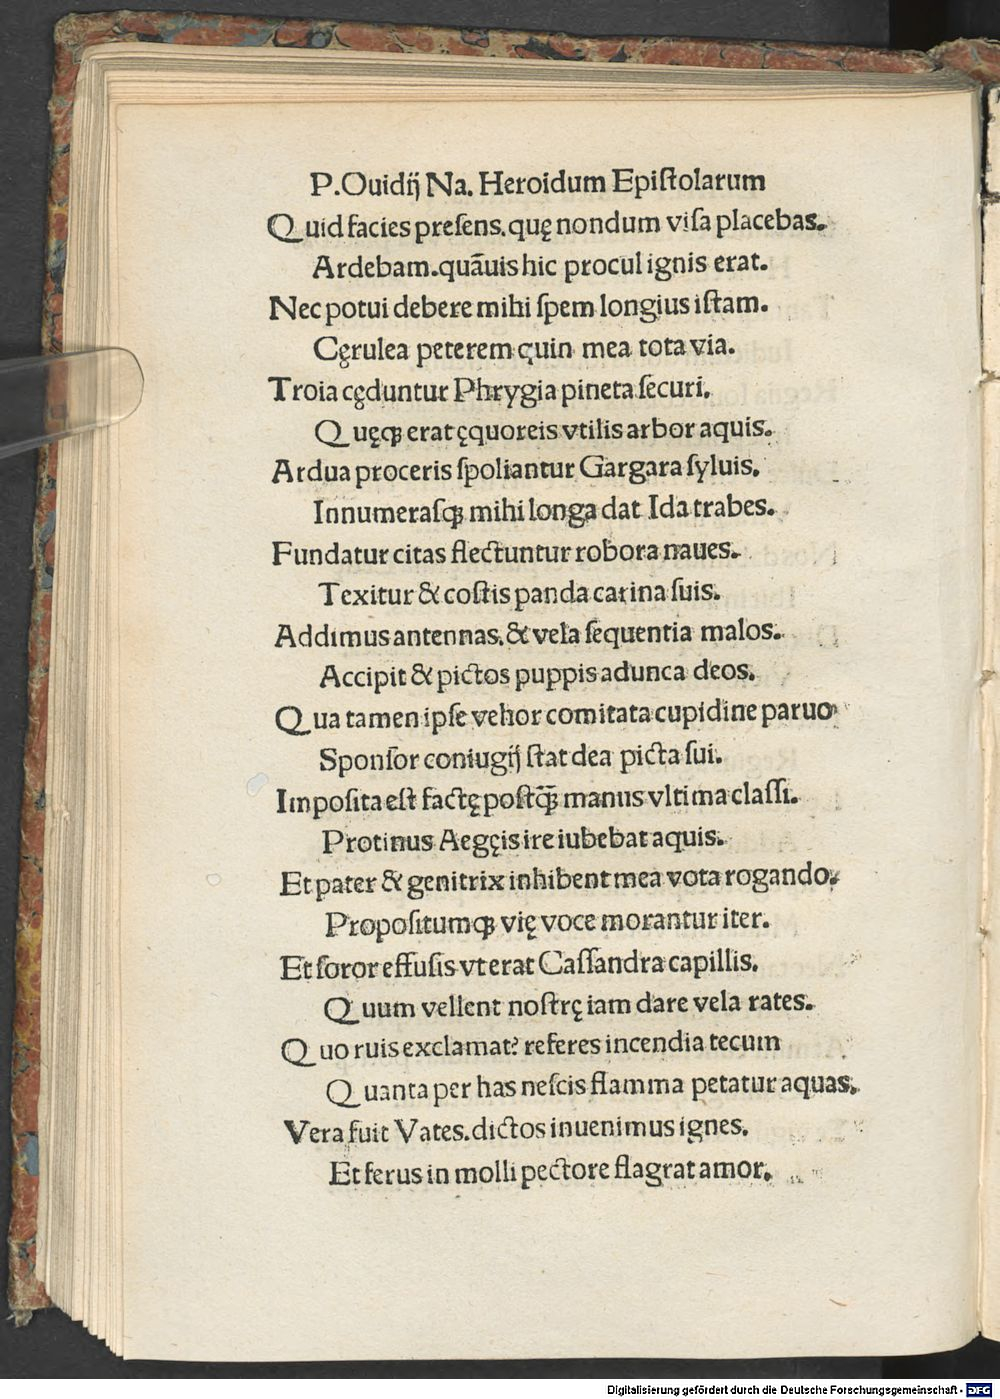 P.Ouidij Na. Heroidum Epiſtolarum
Quid facies preſens. quę nondum viſa placebas.
Ardebam. quãuis hic procul ignis erat.
Nec potui debere mihi ſpem longius iſtam.
Cęrulea peterem quin mea tota via.
Troia cęduntur Phrygia pineta ſecuri.
Quęqꝫ erat ęquoreis vtilis arbor aquis.
Ardua proceris ſpoliantur Gargara ſyluis.
Innumeraſqꝫ mihi longa dat Ida trabes.
Fundatur citas flectuntur robora naues.
Texitur & coſtis panda carina ſuis.
Addimus antennas. & vela ſequentia malos.
Accipit & pictos puppis adunca deos.
Qua tamen ipſe vehor comitata cupidine paruo
Sponſor coniugij ſtat dea picta ſui.
Impoſita eſt factę poſtq̃ manus vltima claſſi.
Protinus Aegęis ire iubebat aquis.
Et pater & genitrix inhibent mea vota rogando.
Propoſitumqꝫ vię voce morantur iter.
Et ſoror effuſis vt erat Caſſandra capillis.
Quum vellent noſtrę iam dare vela rates.
Quo ruis exclamat? referes incendia tecum
Quanta per has neſcis flamma petatur aquas.
Vera fuit Vates. dictos inuenimus ignes.
Et ferus in molli pectore flagrat amor.
Digitalisierung gefördert durch die Deutsche Forschungsgemeinschaft - DFG